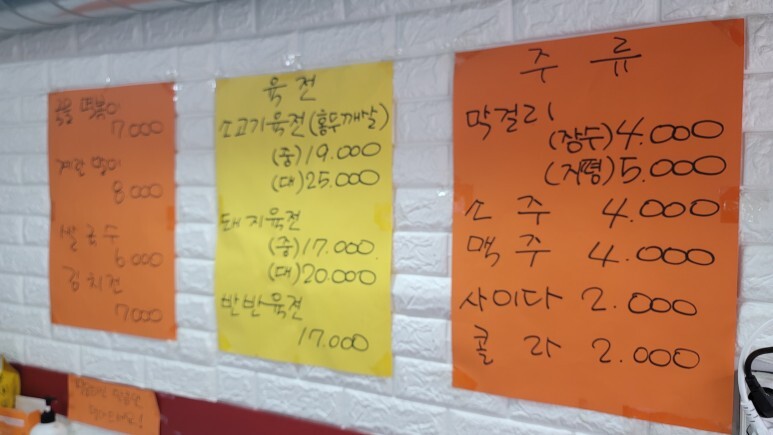 국물 떡볶이
7.000
계란 말이
8.000
쌀국수
6.000
김치전
7.000
육 전
소고기육전(홍두깨살)
(중)19.000
(대)25.000
돼지육전
(중)17.000
(대)20.000
반반육전
17.000
주 류
막걸리
(장수)4.000
(지평)5.000
소 주 4.000
맥 주 4.000
사이다 2.000
콜 라 2.000